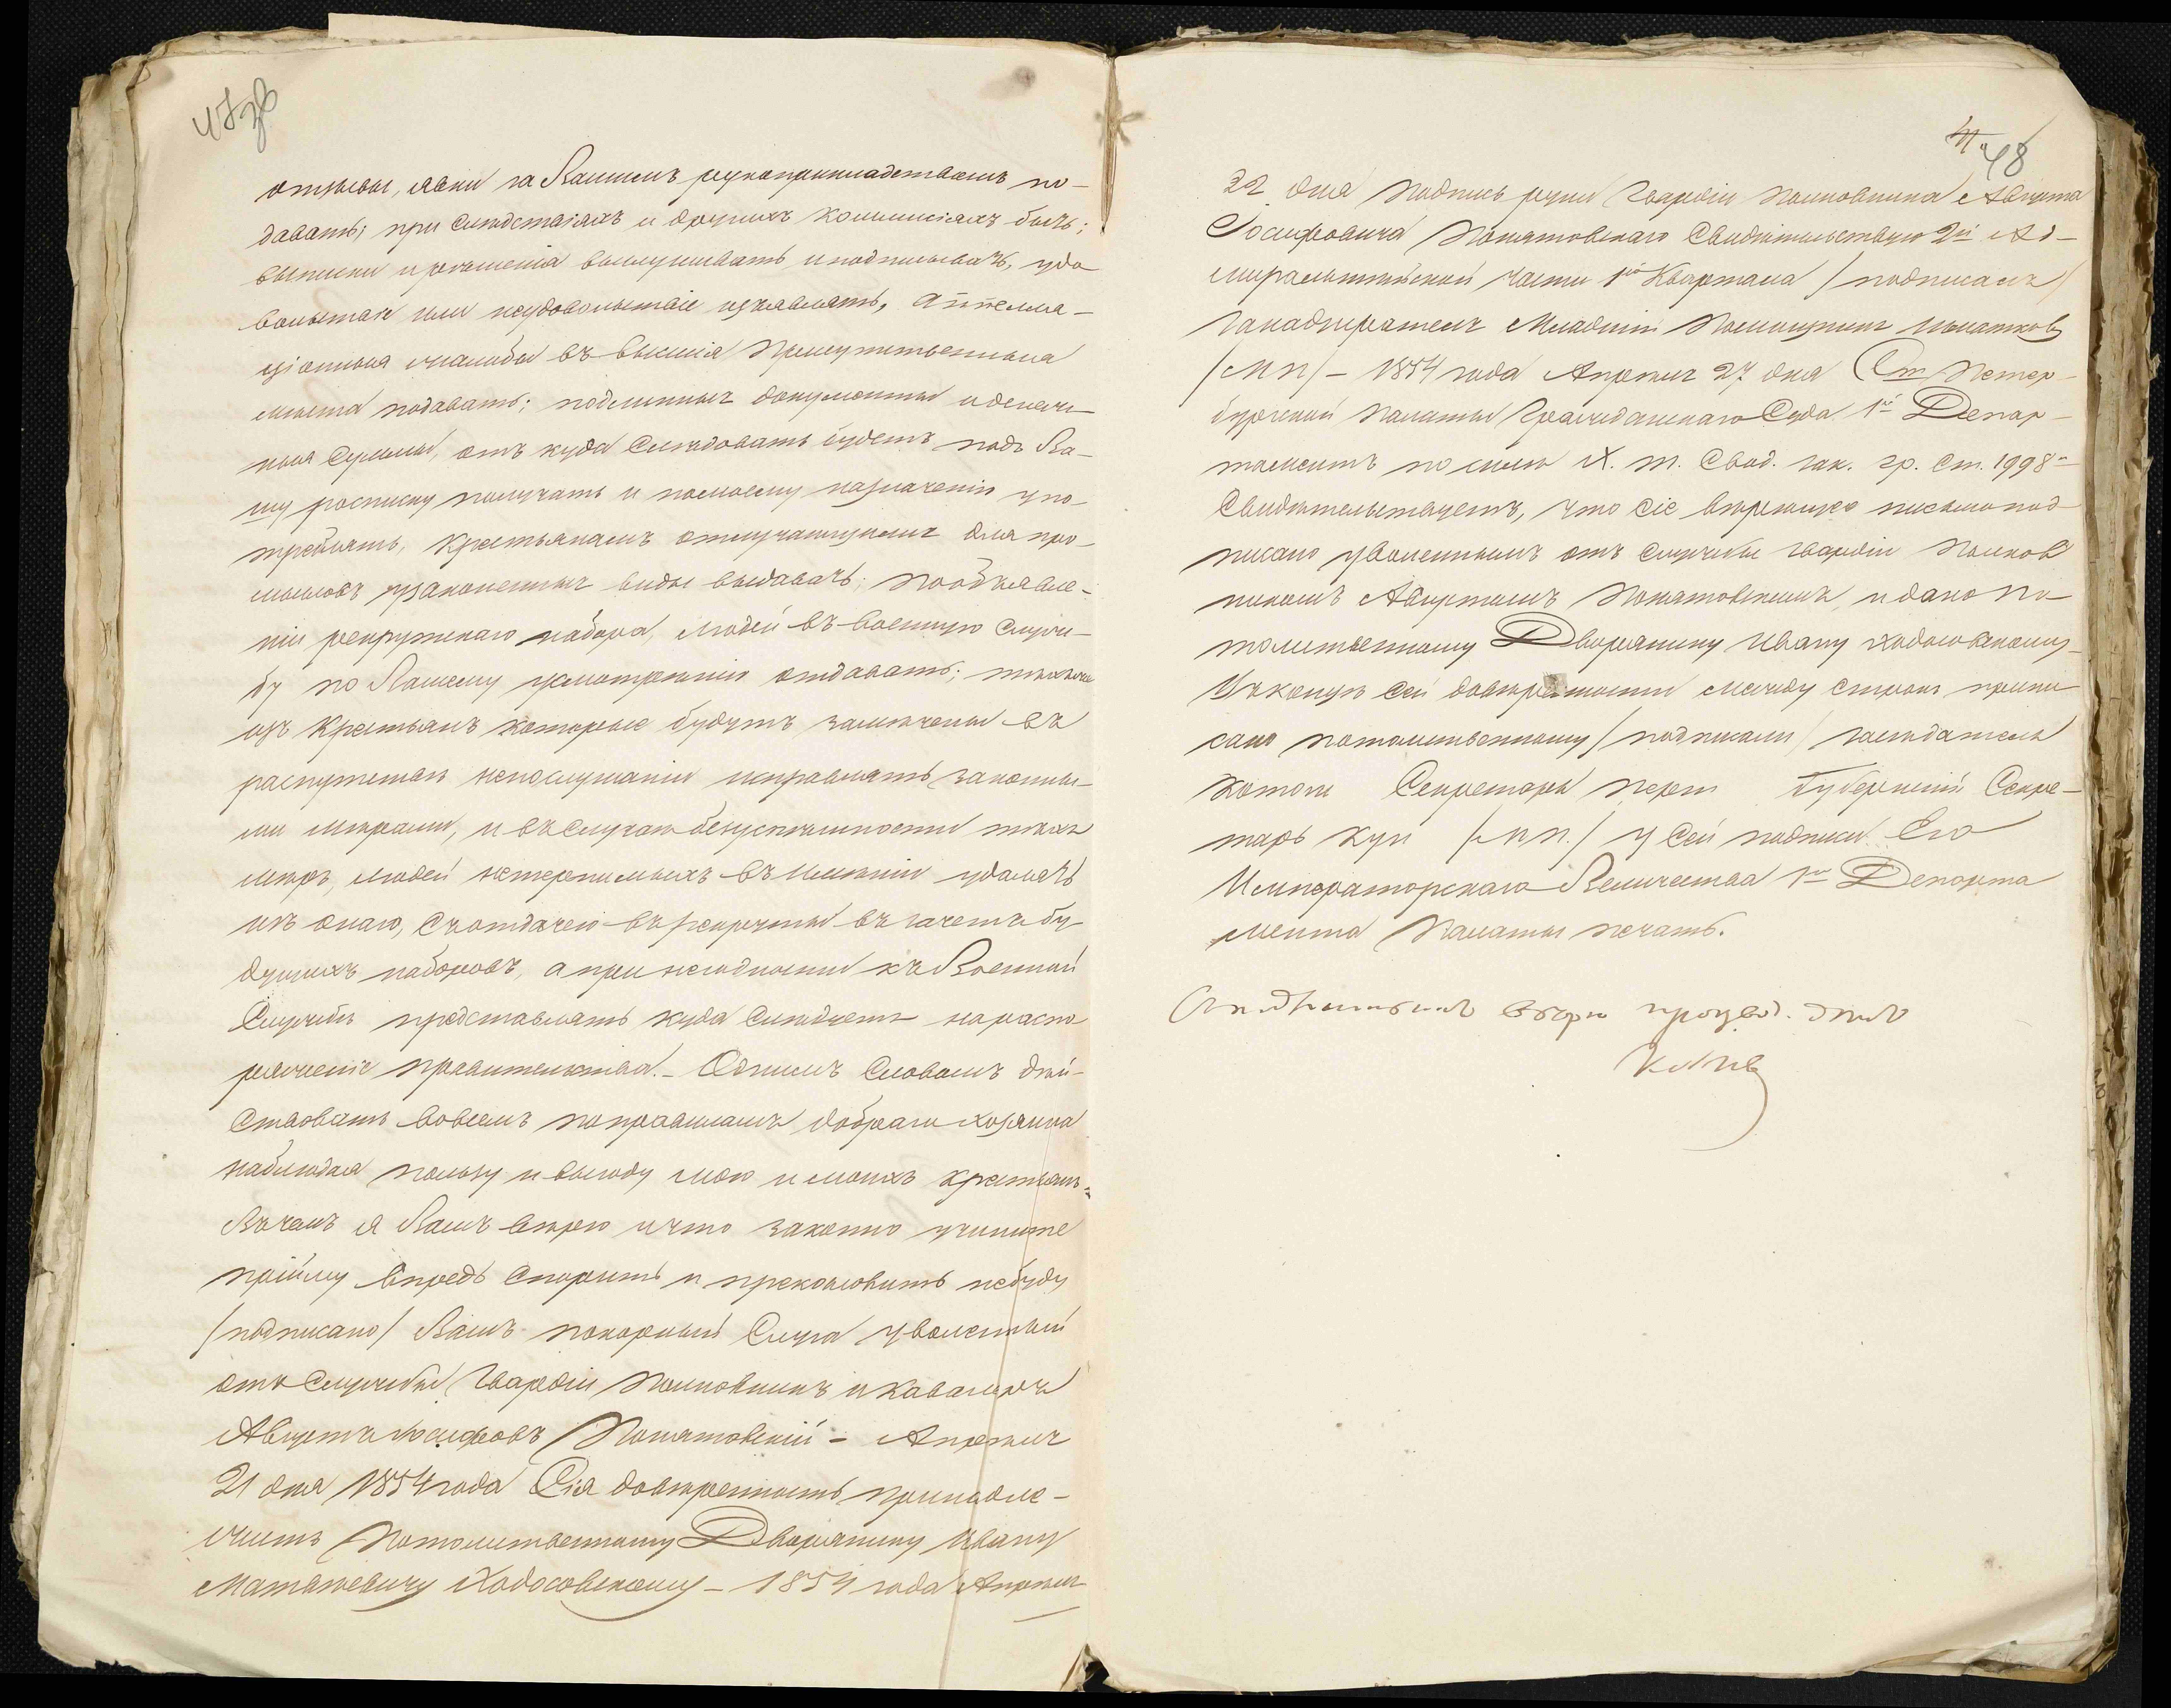 47 об
отзывы, явки за Вашимъ рукоприкладствомъ по-
давать; при следствіяхъ и другихъ коммисіяхъ быть;
выписки и решенія выслушивать и подписывать, удо
вольствіе или неудовольствіе изъявлять, аппелля-
ціонныя жалобы въ высшія Присутственныя
мѣста подавать; подлинные документы и денеж-
ныя Суммы, отъ куда Следовать будетъ подъ Ва-
шу росписку получать и по моему назначенію упо-
треблять, Крестьянамъ отлучающимся для про-
мысловъ узаконенные виды выдавать; по объявле-
ніи рекрутскаго набора, людей въ Военную Служ-
бу по Вашему усмотрѣнію отдавать; тѣхъ же
изъ Крестьянъ которые будутъ замѣчены въ
распутствѣ непослушаніи исправлять законны-
ми мѣрами, и въ случаѣ безуспѣшности тѣхъ
мѣръ, людей нетерпимыхъ въ имѣніи удалять
изъ онаго, съ отдачею въ рекруты въ зачетъ бу
дущихъ наборовъ, а при негодности къ Военной
Службѣ представлять куда слѣдуетъ на распо
ряженіе правительства. - Однимъ Словомъ дѣй-
ствовать во всемъ по правиламъ добраго хозяина
наблюдая пользу и выгоду мою и моихъ крестьянъ.
Въ чемъ я Вамъ вѣрю и что законно учините
прійму впредь спорить и прекословить небуду
/подписано/ Вашъ покорный Слуга уволенный
отъ Службы Гвардіи Полковникъ и Кавалеръ
Августъ Іосифовъ Понятовскій - Апрѣля
21 дня 1854 года Сія довѣренность принадле-
житъ Потомственному Дворянину Ивану
Матвѣевичу Ходосовскому - 1854 года Апрѣля
48
22 дня Подпись руки Гвардіи Полковника Августа
Іосифовича Понятовскаго Свидѣтельствую 2й Ад-
миралтейской части 1го Квартала /подписалъ/
Надзирателя Младшій Помощникъ
/М П/ - 1854 года Апрѣля 27 дня Ст Петер-
бургской Палаты Гражданскаго Суда 1й Депар-
таментъ по силѣ X. т. Свод. зак. гр. ст. 1998й
Свидѣтельствуетъ, что сіе вѣрющее письмо под
писано уволеннымъ отъ Службы Гвардіи Полков
никомъ Августомъ Понятовскимъ, и дано По
томственному Дворянину Ивану Ходосовскому
У сей довѣренности между строкъ припи
сано потомственному /подписали/ Засѣдатель
Секретарь Губернскій Секре-
тарь /М П./ у сей подписи Его
Императорскаго Величества 1го Департа
мента Палаты печать.